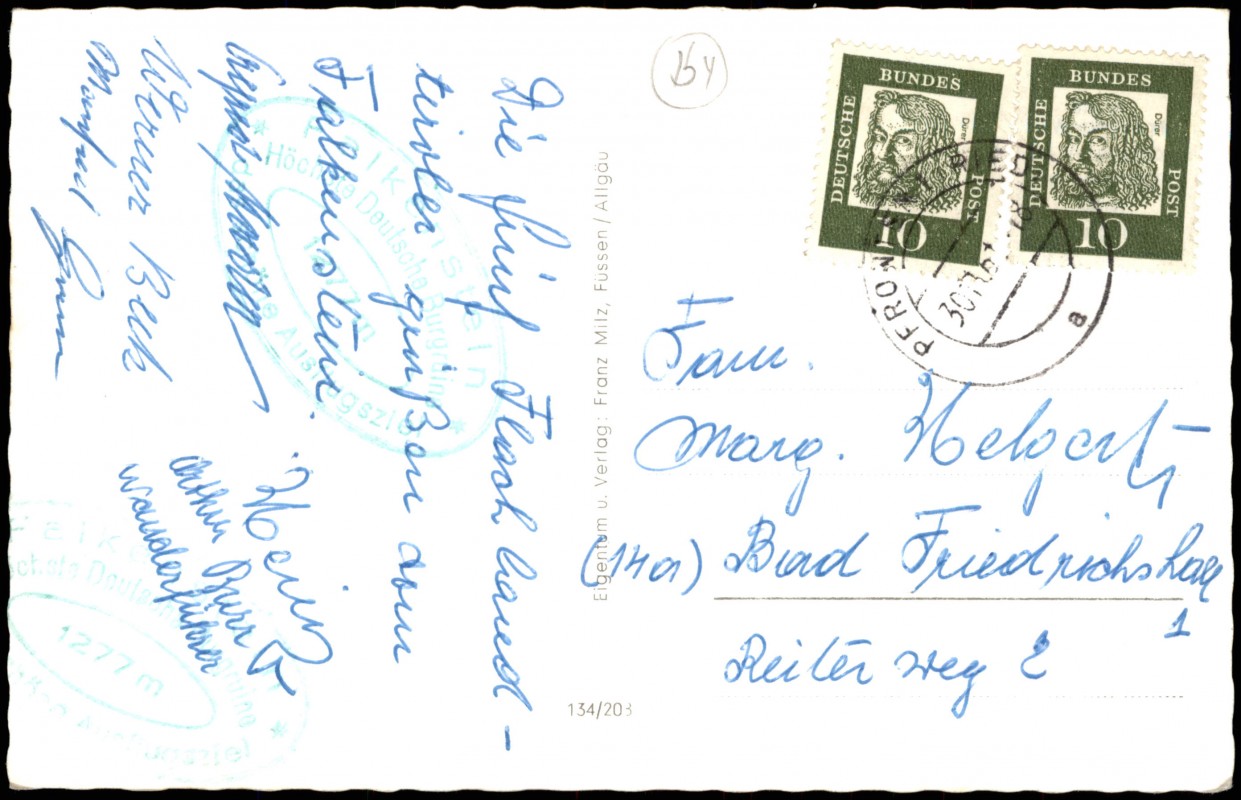 Die fünf Flachland-
tiroler grüßen vom
Falkenstein.
Werner Beck
Manfred
Heinz
Arthur Burr
Wanderführer
Falkenstein
Höchste Deutsche Burgruine
1277 m
Ausflugsziel
Falkenstein
Höchste Deutsche Burgruine
1277 m
Ausflugsziel
Eigentum u. Verlag: Franz Milz, Füssen/Allgäu
134/203
DEUTSCHE BUNDESPOST
Dürer
10
DEUTSCHE BUNDESPOST
Dürer
10
PFRONTEN-RIED
a
Fam.
Marg.
(14a) Bad Friedrichshall
1
Reiterweg 2